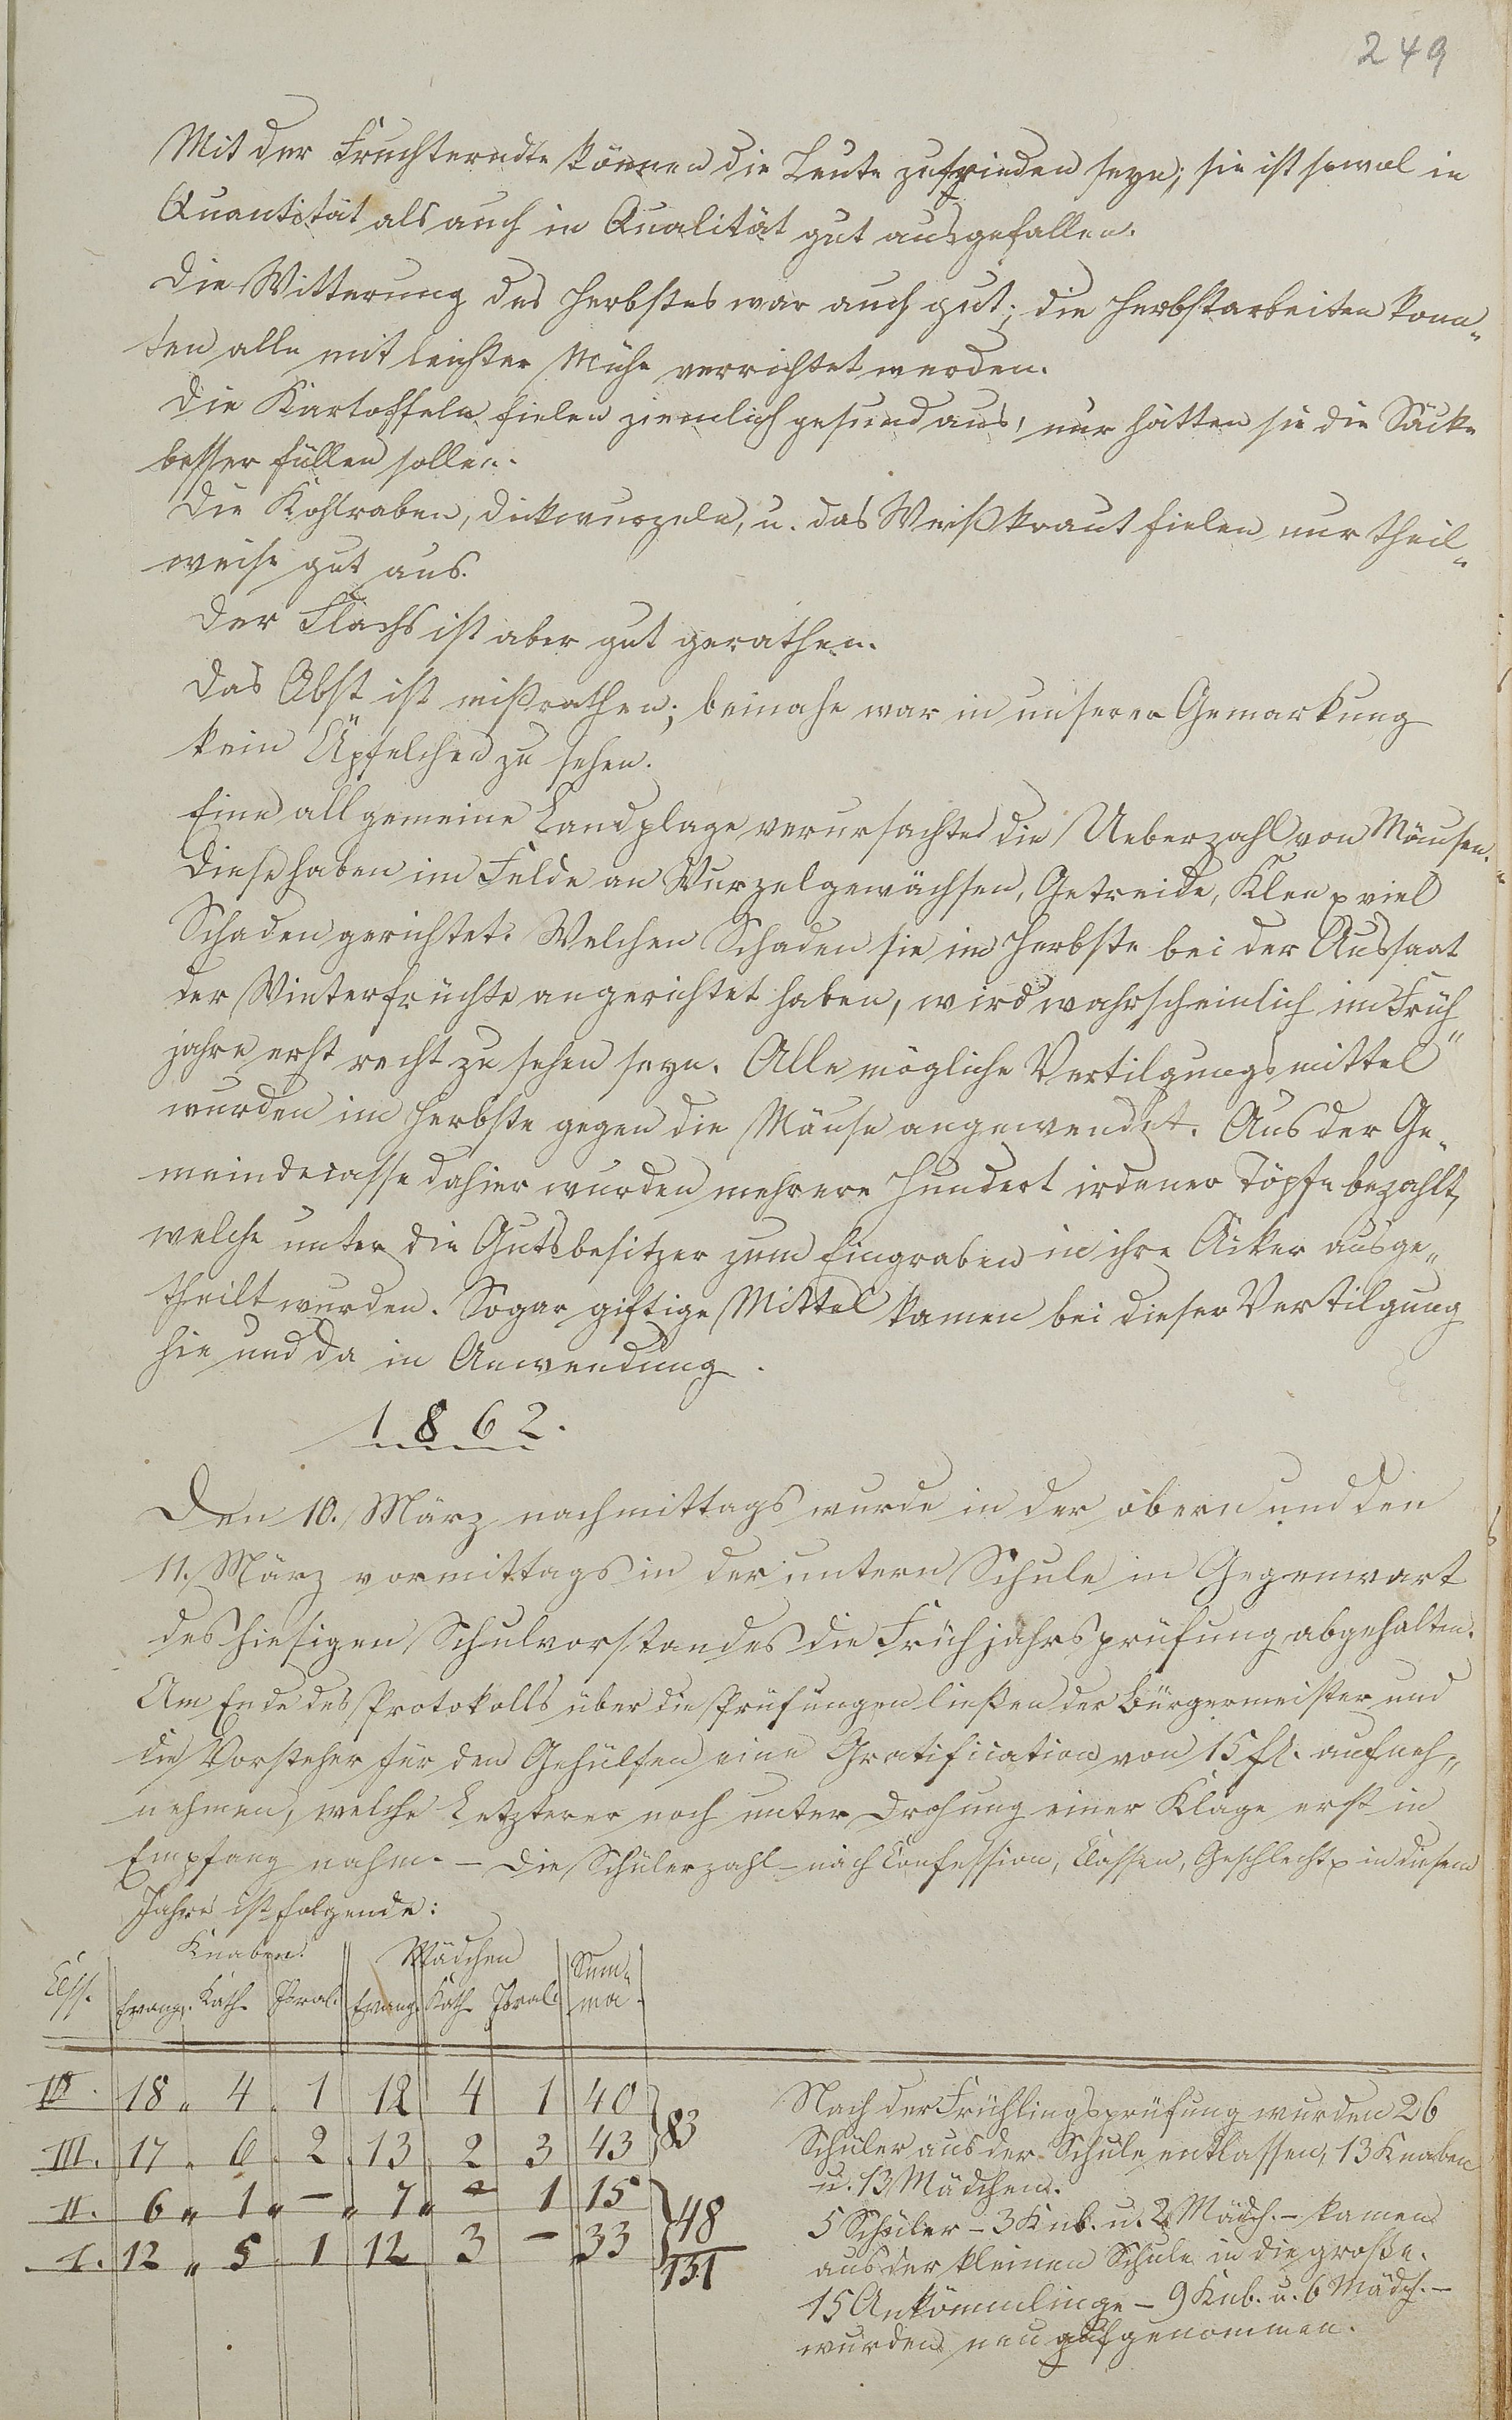 249
Mit der Fruchterndte können die Leute zufrieden seyn; sie ist sowol in
Quantität als auch in Qualität gut ausgefallen.
Die Witterung des Herbstes war auch gut; die Herbstarbeiten konn„
ten alle mit leichter Mühe verrichtet werden.
Die Kartoffeln fielen ziemlich gesund aus, nur hätten sie die Säcke
besser füllen sollen.
Die Kohlraben, Dickwurzeln, u. das Weißkraut fielen nur theil„
weise gut aus.
Der Flachs ist aber gut gerathen.
Das Obst ist mißrathen; beinahe war in unserer Gemarkung
kein Äpfelchen zu sehen.
Eine allgemeine Landplage verursachte die Ueberzahl von Mäusen.
Diese haben im Felde an Wurzelgewächsen, Getreide, Klee p viel
Schaden gerichtet. Welchen Schaden sie im Herbste bei der Aussaat
der Winterfrüchte angerichtet haben, wird wahrscheinlich im Früh„
jahre erst recht zu sehen seyn. Alle mögliche Vertilgungsmittel
wurden im Herbste gegen die Mäuse angewendet. Aus der Ge„
meindecasse dahier wurden mehrere Hundert irdener Töpfe bezahlt,
welche unter die Gutsbesitzer zum Eingraben in ihre Äcker ausge„
theilt wurden. Sogar giftige Mittel kamen bei dieser Vertilgung
hie und da in Anwendung.
1862.
Den 10. März nachmittags wurde in der obern und den
11. März vormittags in der untern Schule in Gegenwart
des hiesigen Schulvorstandes die Frühjahrsprüfung abgehalten.
Am Ende des Protokolls über die Prüfungen ließen der Bürgermeister und
die Vorsteher für den Gehülfen eine Gratification von 15 fl. aufneh„
nehmen, welche Letzterer noch unter Drohung einer Klage erst in
Empfang nahm. – Die Schülerzahl – nach Confession, Classen, Geschlecht p in diesem
Jahre ist folgende:
Knaben. Mädchen Sum„
Clss. Evang. Kath. Isral. Evang. Kath. Isral. ma.
IV. 18 „ 4 „ 1 12 4 1 40
III. 17 „ 6 2 13 2 3 43 } 83
II. 6 „ 1 „ – „ 7 „ – 1 15
I. 12 „ 5 1 12 3 – 33 } 48
131
Nach der Frühlingsprüfung wurden 26
Schüler aus der Schule entlassen, 13 Knaben
u. 13 Mädchen.
5 Schüler – 3 Knb. u. 2 Mädch. – kamen
aus der kleinen Schule in die große.
15 Ankömmlinge – 9 Knb. u. 6 Mädch. –
wurden neu aufgenommen.